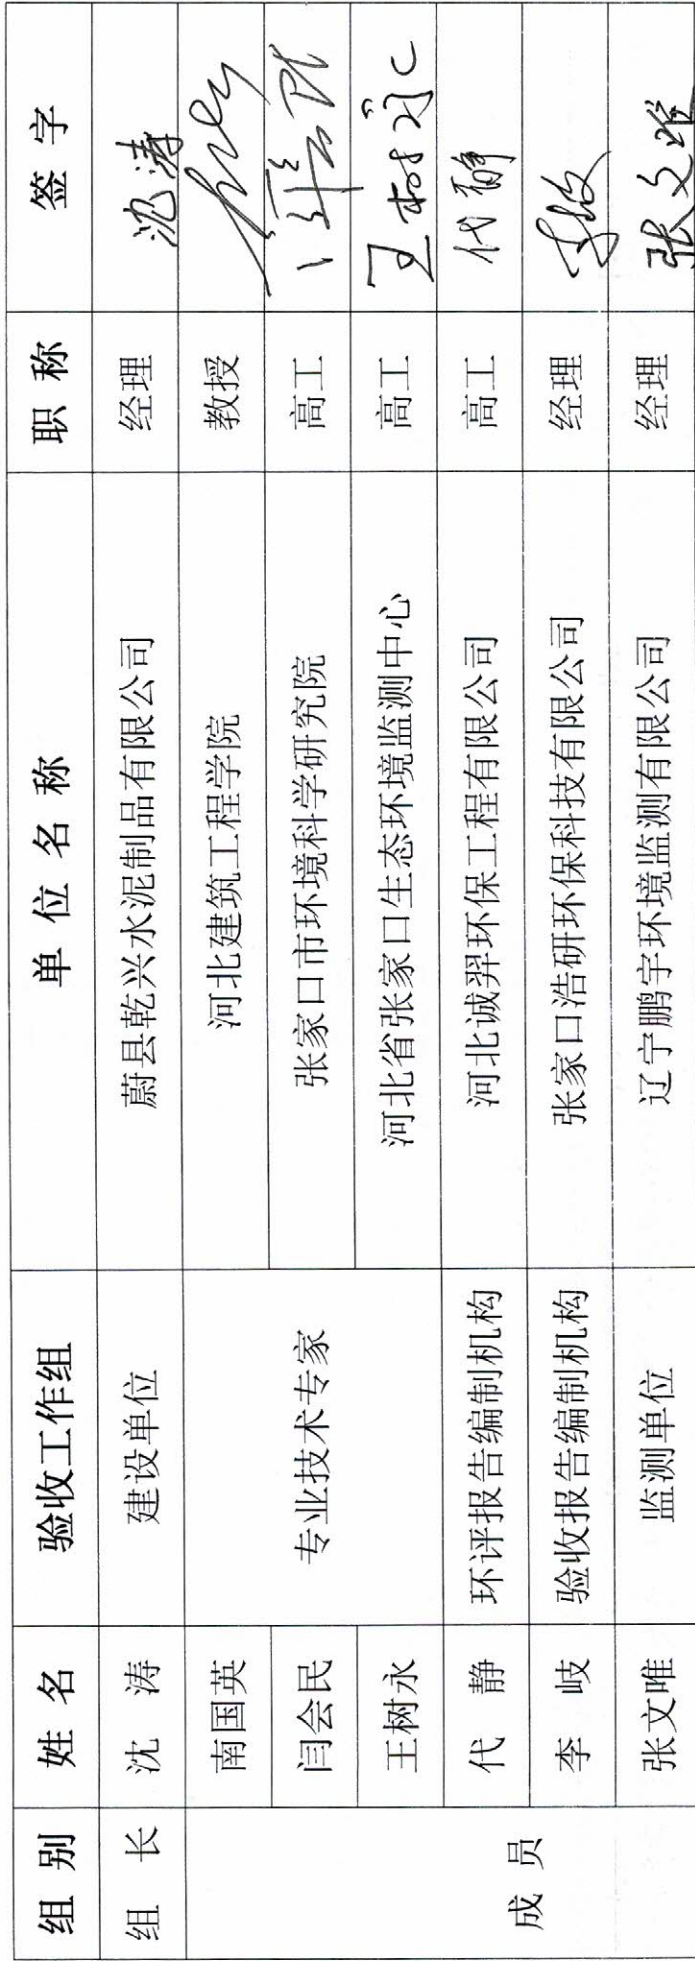 组 别 姓 名 验收工作组 单 位 名 称 职 称 签 字
组 长 沈 涛 建设单位 蔚县乾兴水泥制品有限公司 经理 沈涛
成 员 南国英 专业技术专家 河北建筑工程学院 教授
闫会民 张家口市环境科学研究院 高工
王树永 河北省张家口生态环境监测中心 高工 王树永
代 静 环评报告编制机构 河北诚羿环保工程有限公司 高工 代静
李 岐 验收报告编制机构 张家口浩研环保科技有限公司 经理
张文唯 监测单位 辽宁鹏宇环境监测有限公司 经理 张文唯